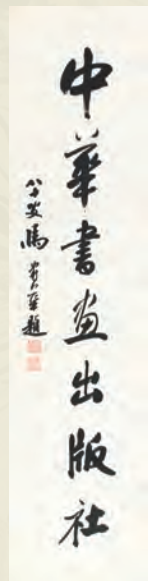 中華書画出版社
八十叟馮
題